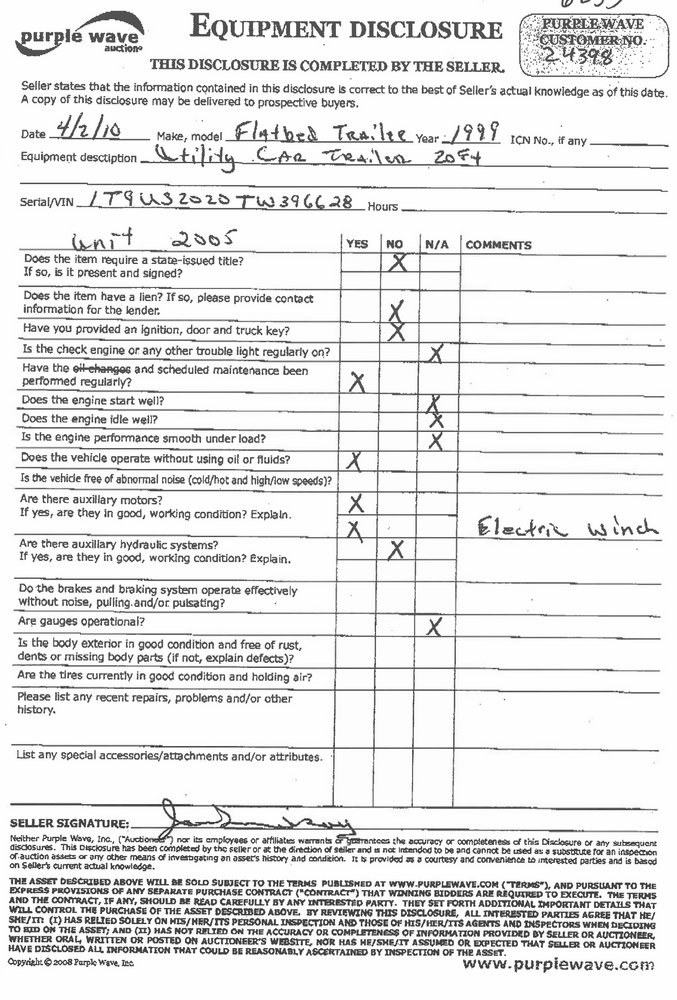 purple wave
auction®
EQUIPMENT DISCLOSURE
PURPLE WAVE
CUSTOMER NO.
24398
THIS DISCLOSURE IS COMPLETED BY THE SELLER.
Seller states that the information contained in this disclosure is correct to the best of Seller's actual knowledge as of this date.
A copy of this disclosure may be delivered to prospective buyers.
Date 4/2/10 Make, model Flatbed Trailer Year 1999 ICN No., if any
Equipment desctiption Utility Car Trailer 20Ft
Serial/VIN 1T9US2020TW396628 Hours
Unit 2005 YES NO N/A COMMENTS
Does the item require a state-issued title? X
If so, is it present and signed?
Does the item have a lien? If so, please provide contact
information for the lender. X
Have you provided an ignition, door and truck key? X
Is the check engine or any other trouble light regularly on? X
Have the oil changes and scheduled maintenance been
performed regularly? X
Does the engine start well? X
Does the engine idle well? X
Is the engine performance smooth under load? X
Does the vehicle operate without using oil or fluids? X
Is the vehicle free of abnormal noise (cold/hot and high/low speeds)?
Are there auxiliary motors? X
If yes, are they in good, working condition? Explain. X Electric Winch
Are there auxiliary hydraulic systems? X
If yes, are they in good, working condition? Explain.
Do the brakes and braking system operate effectively
without noise, pulling and/or pulsating?
Are gauges operational? X
Is the body exterior in good condition and free of rust,
dents or missing body parts (if not, explain defects)?
Are the tires currently in good condition and holding air?
Please list any recent repairs, problems and/or other
history.
List any special accessories/attachments and/or attributes.
SELLER SIGNATURE:
Neither Purple Wave, Inc., ("Auctioneer") nor its employees or affiliates warrants or guarantees the accuracy or completeness of this Disclosure or any subsequent
disclosures. This Disclosure has been completed by the seller or at the direction of seller and is not intended to be and cannot be used as a substitute for an inspection
of auction assets or any other means of investigating an asset's history and condition. It is provided as a courtesy and convenience to interested parties and is based
on Seller's current actual knowledge.
THE ASSET DESCRIBED ABOVE WILL BE SOLD SUBJECT TO THE TERMS PUBLISHED AT WWW.PURPLEWAVE.COM ("TERMS"), AND PURSUANT TO THE
EXPRESS PROVISIONS OF ANY SEPARATE PURCHASE CONTRACT ("CONTRACT") THAT WINNING BIDDERS ARE REQUIRED TO EXECUTE. THE TERMS
AND THE CONTRACT, IF ANY, SHOULD BE READ CAREFULLY BY ANY INTERESTED PARTY. THEY SET FORTH ADDITIONAL IMPORTANT DETAILS THAT
WILL CONTROL THE PURCHASE OF THE ASSET DESCRIBED ABOVE. BY REVIEWING THIS DISCLOSURE, ALL INTERESTED PARTIES AGREE THAT HE/
SHE/IT: (I) HAS RELIED SOLELY ON HIS/HER/ITS PERSONAL INSPECTION AND THOSE OF HIS/HER/ITS AGENTS AND INSPECTORS WHEN DECIDING
TO BID ON THE ASSET; AND (II) HAS NOT RELIED ON THE ACCURACY OR COMPLETENESS OF INFORMATION PROVIDED BY SELLER OR AUCTIONEER,
WHETHER ORAL, WRITTEN OR POSTED ON AUCTIONEER'S WEBSITE, NOR HAS HE/SHE/IT ASSUMED OR EXPECTED THAT SELLER OR AUCTIONEER
HAVE DISCLOSED ALL INFORMATION THAT COULD BE REASONABLY ASCERTAINED BY INSPECTION OF THE ASSET.
Copyright © 2008 Purple Wave, Inc.
www.purplewave.com